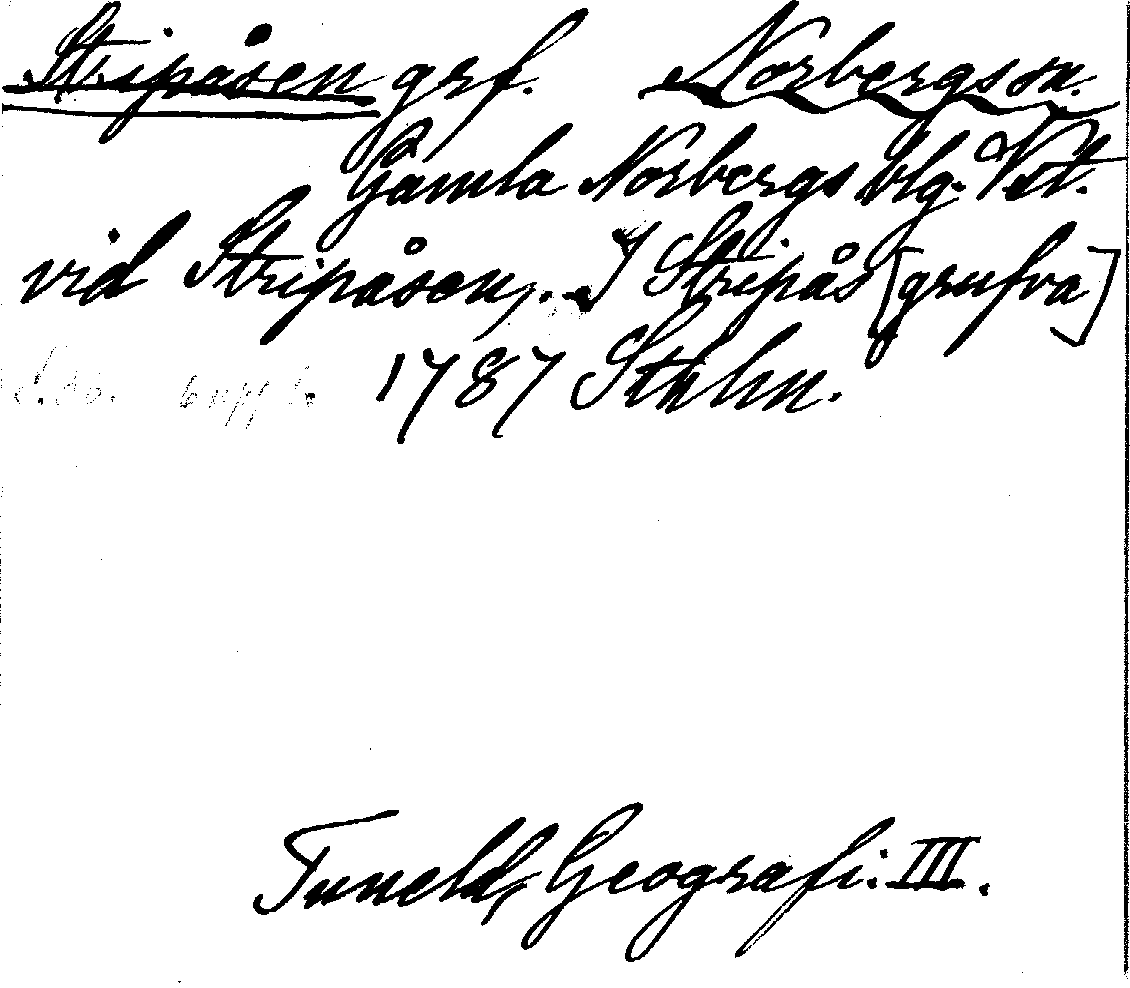 Stripåsen grf. Norbergs sn.
Gamla Norbergs blg. Vstm.
vid Stripåsen,. I Stripås [grufva]
1787 Sthlm.
Tuneld, Geografi. III.